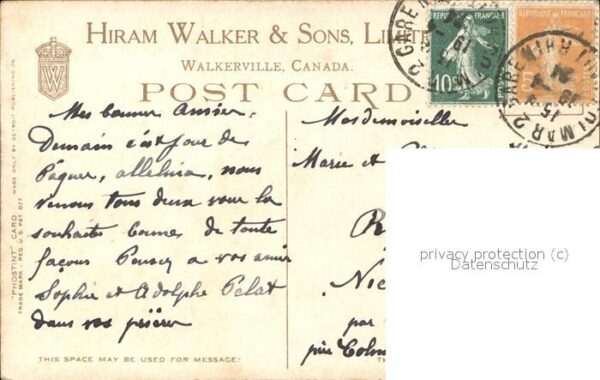 HIRAM WALKER & SONS, LI
WALKERVILLE, CANADA.
POST CARD
"PHOSTINT" CARD MADE ONLY BY DETROIT PUBLISHING CO.
TRADE MARK REG. U.S. PAT. OFF.
RÉPUBLIQUE FRANÇAISE
10c
GARE
COLMAR 2 GARE
15
Mes bonnes Amies
Demain c'est jour de
Pâques, alleluia, nous
venons tous deux vous la
souhaiter bonnes de toute
façons Pensez a vos amis
Sophie et Adolphe Pelat
dans vos prière
Mesdemoiselles
Marie et
Nic
par
près Colm
THIS SPACE MAY BE USED FOR MESSAGE.
TH
privacy protection (c)
Datenschutz